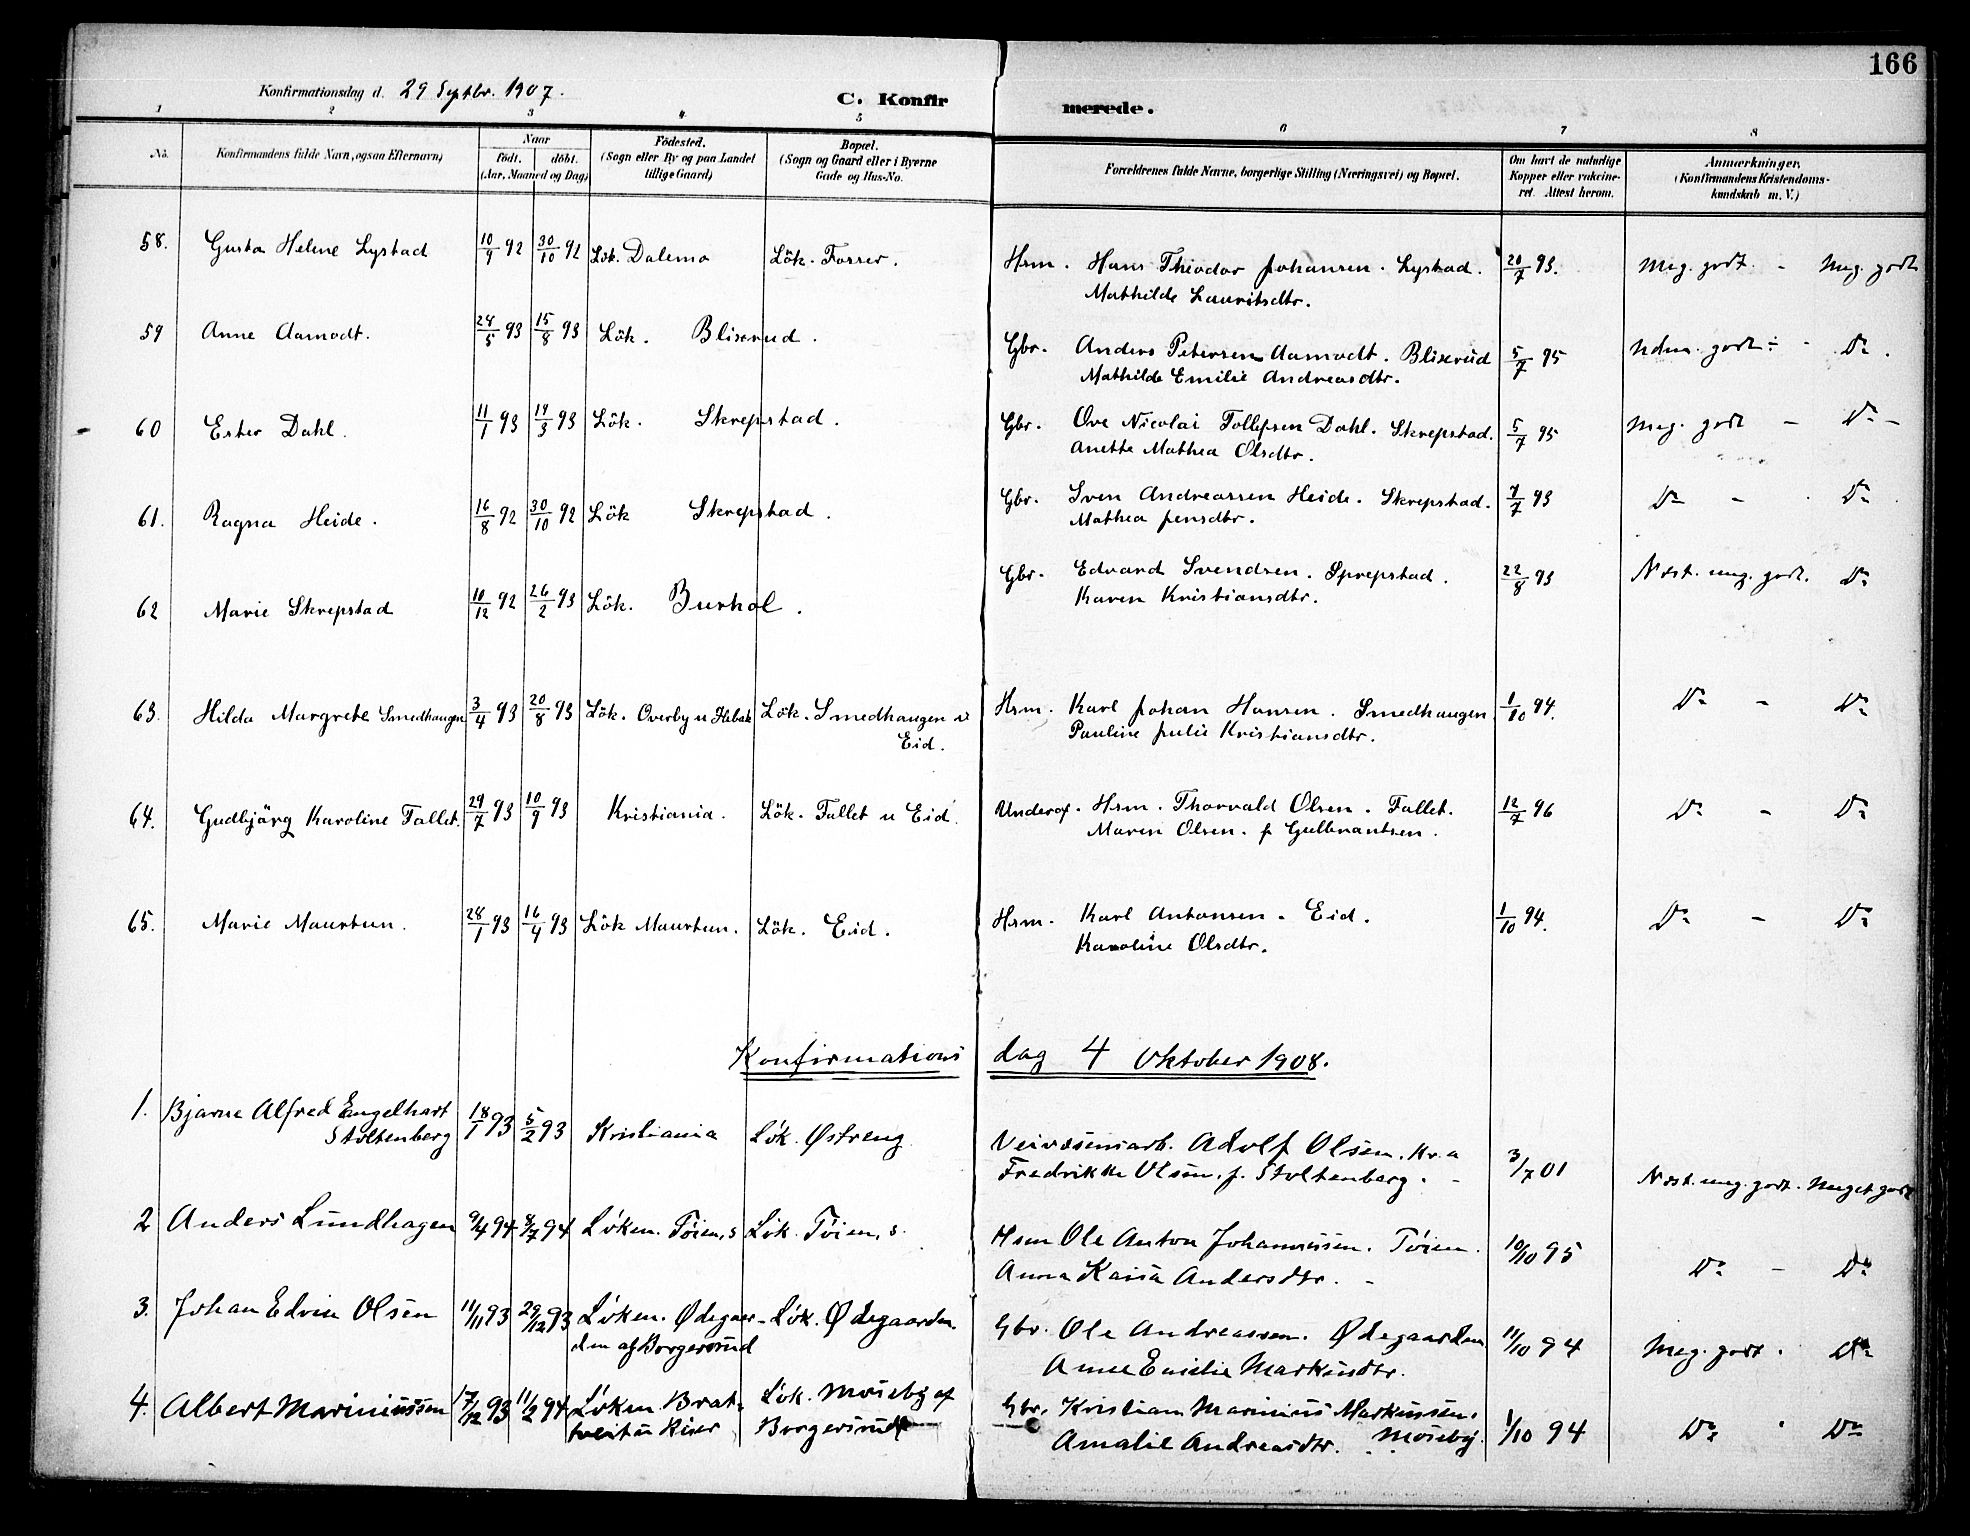 166
Konfirmationsdag d. 29 Septbr. 1907.
C. Konfirmerede.
1 2 3 4 5 6 7 8
No. Konfirmandens fulde Navn, ogsaa Efternavn) Naar født. døbt. (Aar, Maaned og Dag) Fødested. (Sogn eller By og paa Landet tillige Gaard) Bopæl. (Sogn og Gaard eller i Byerne Gade og Hus-No. Forældrenes fulde Navne, borgerlige Stilling (Næringsvei) og Bopæl. Om havt de naturlige Kopper eller vaccineret. Attest herom. Anmærkninger. (Konfirmandens Kristendomskundskab m. V.)
58. Gusta Helene Lystad 10/9 92 30/10 92 Lök. Dalemo Lök. Forrer. Hsm. Hans Theodor Johansen. Lystad. 20/7 93. Meg. godt. - Meg. godt
Mathilde Lauritsdtr.
59 Anne Aamodt. 24/5 93 15/8 93 Lök. Blixrud. Gbr. Anders Petersen Aamodt. Blixrud 5/7 95 Udm. godt - Do.
Mathilde Emilie Andreasdtr.
60 Ester Dahl. 11/1 93 19/3 93 Lök. Skrepstad. Gbr. Ove Nicolai Tollefsen Dahl. Skrepstad. 5/7 95 Meg. godt - Do -
Anette Mathea Olsdtr.
61. Ragna Heide. 16/8 92 30/10 92 Lök Skrepstad. Gbr. Sven Andreassen Heide. Skrepstad. 7/7 93 Do - Do
Mathea Jensdtr.
62 Marie Skrepstad 10/12 92 26/2 93 Lök. Burhol. Gbr. Edvard Svendsen. Sprepstad. 22/8 93 Næst. meg. godt. Do
Karen Kristiansdtr.
63. Hilda Margrete Smedhaugen 3/4 93 20/8 93 Lök. Overby u Hebæk Lök. Smedhaugen u Eid. Hsm. Karl Johan Hansen. Smedhaugen 1/10 94. Do - Do
Pauline Julie Kristiansdtr.
64. Gudbjärg Karoline Fallet. 29/7 93 10/9 93 Kristiania. Lök. Fallet u Eid. Underof. Hsm. Thorvald Olsen. Fallet. 12/7 96 Do - Do
Maren Olsen. f Gulbrantsen.
65. Marie Maurtun. 28/1 93 16/4 93 Lök Maurtun. Lök. Eid. Hsm. Karl Antonsen. Eid. 1/10 94. Do - Do
Karoline Olsdtr.
Konfirmationsdag 4 Oktober 1908.
1. Bjarne Alfred Engelhart Stoltenberg 18/1 93 5/2 93 Kristiania Løk. Østreng Veivæsensarb. Adolf Olsen. Kr.a 3/7 01 Næst. meg. godt. Meget godt
Fredrikke Olsen. f. Stoltenberg.
2 Anders Lundhagen 9/4 94 8/7 94 Løken. Tøien, s Løk. Tøien, s. Hsm Ole Anton Johannesen. Tøien. 10/10 95 Do - Do
Anna Kaisa Andersdtr.
3. Johan Edvin Olsen 11/11 93 29/12 93 Løken. Ødegaarden af Borgersrud Løk. Ødegaarden Gbr. Ole Andreassen. Ødegaarden 11/10 94 Meg. godt. Do
Anne Emilie Markusdtr.
4. Albert Marinïussen 17/12 93 11/2 94 Løken Bratveit u Kiser Løk. Moseby af Borgersrud Gbr. Kristian Marinius Markussen. Moseby. 1/10 94 Do Do
Amalie Andreasdtr.